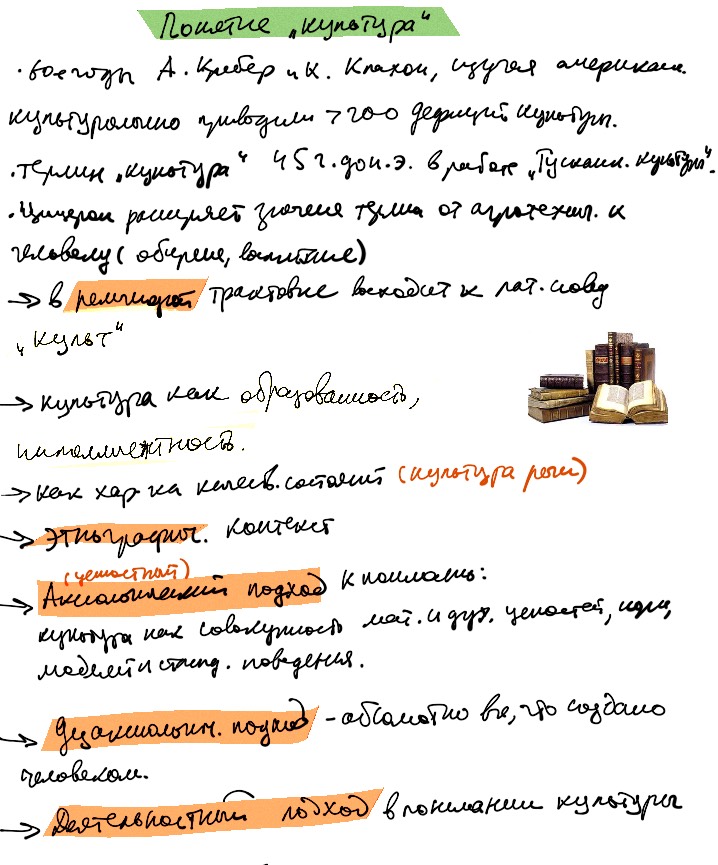 Понятие „культура“
· 60е годы А. Кребер и К. Клакхон, изучая американ.
культурологию приводили > 200 дефиниций культуры.
· термин „культура“ 45 г. до н.э. в работе „Тускан. культуры“.
· Цицерон расширяет значение термина от агротехнич. к
человеку (обучение, воспитание)
→ в религиозной трактовке восходит к лат. слову
„культ“
→ культура как образованность,
интеллигентность.
→ как хар-ка качеств. состояний (культура речи)
→ этнографич. контекст
(ценностный)
→ Аксиологический подход к пониманию:
культура как совокупность мат. и дух. ценностей, норм,
моделей и станд. поведения.
→ Дезаксиологич. подход – абсолютно все, что создано
человеком.
→ Деятельностный подход в понимании культуры